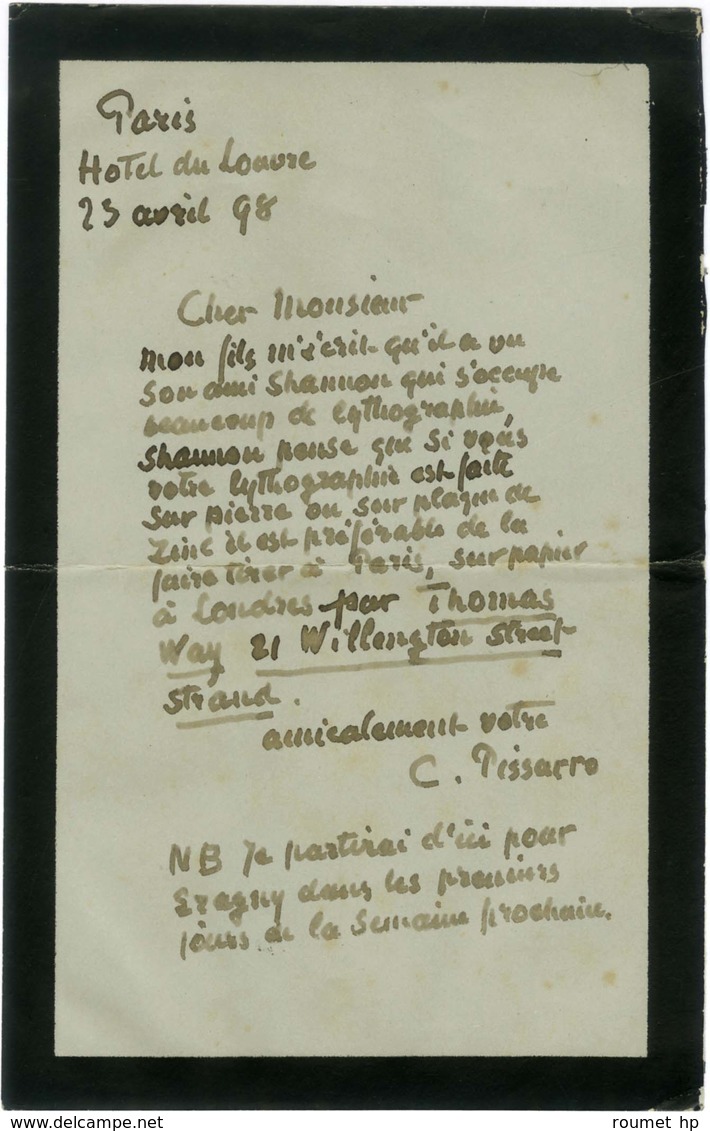 Paris
Hotel du Louvre
23 avril 98
Cher Monsieur
mon fils m'écrit qu'il a vu
son ami Shannon qui s'occupe
beaucoup de lythographie,
Shannon pense que si vous
votre lythographie est faite
sur pierre ou sur plaque de
Zinc il est préférable de la
faire tirer à Paris, sur papier
à Londres par Thomas
Way 21 Willengton Street
Strand.
amicalement votre
C. Pissarro
NB Je partirai d'ici pour
Eragny dans les premiers
jours de la semaine prochaine.
roumet hp